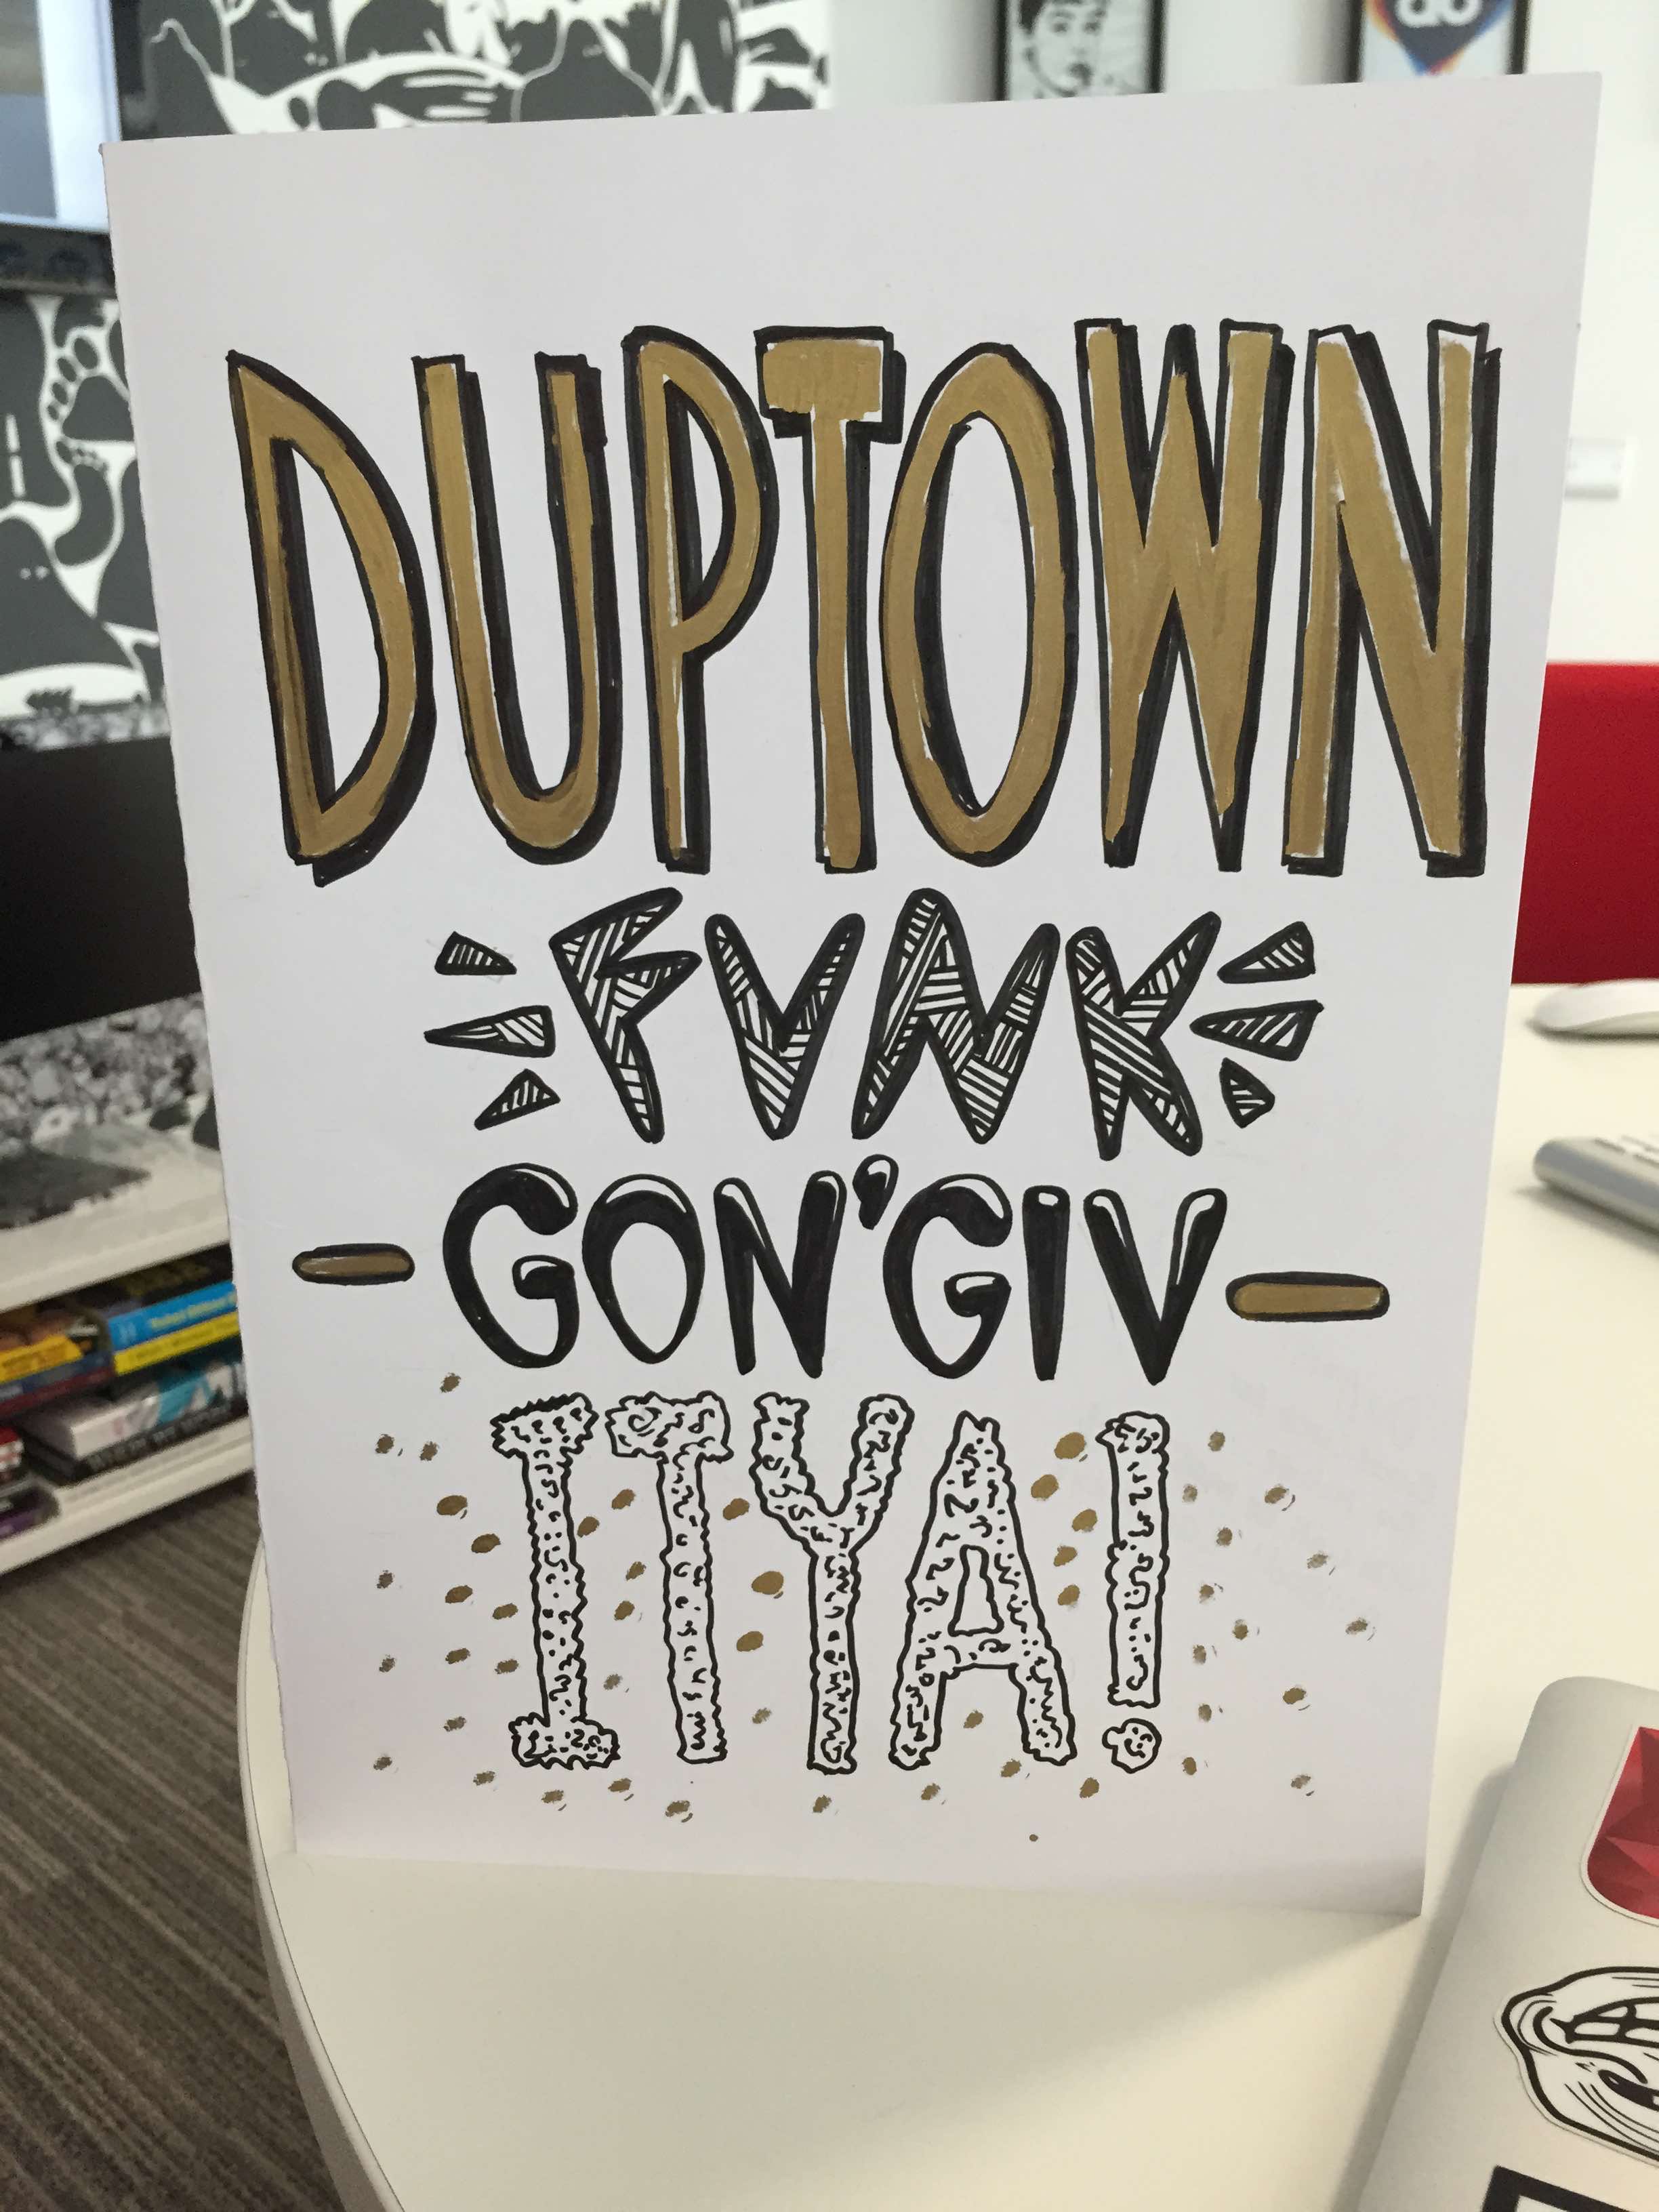 DUPTOWN
FVNK
GON'GIV
ITYA!